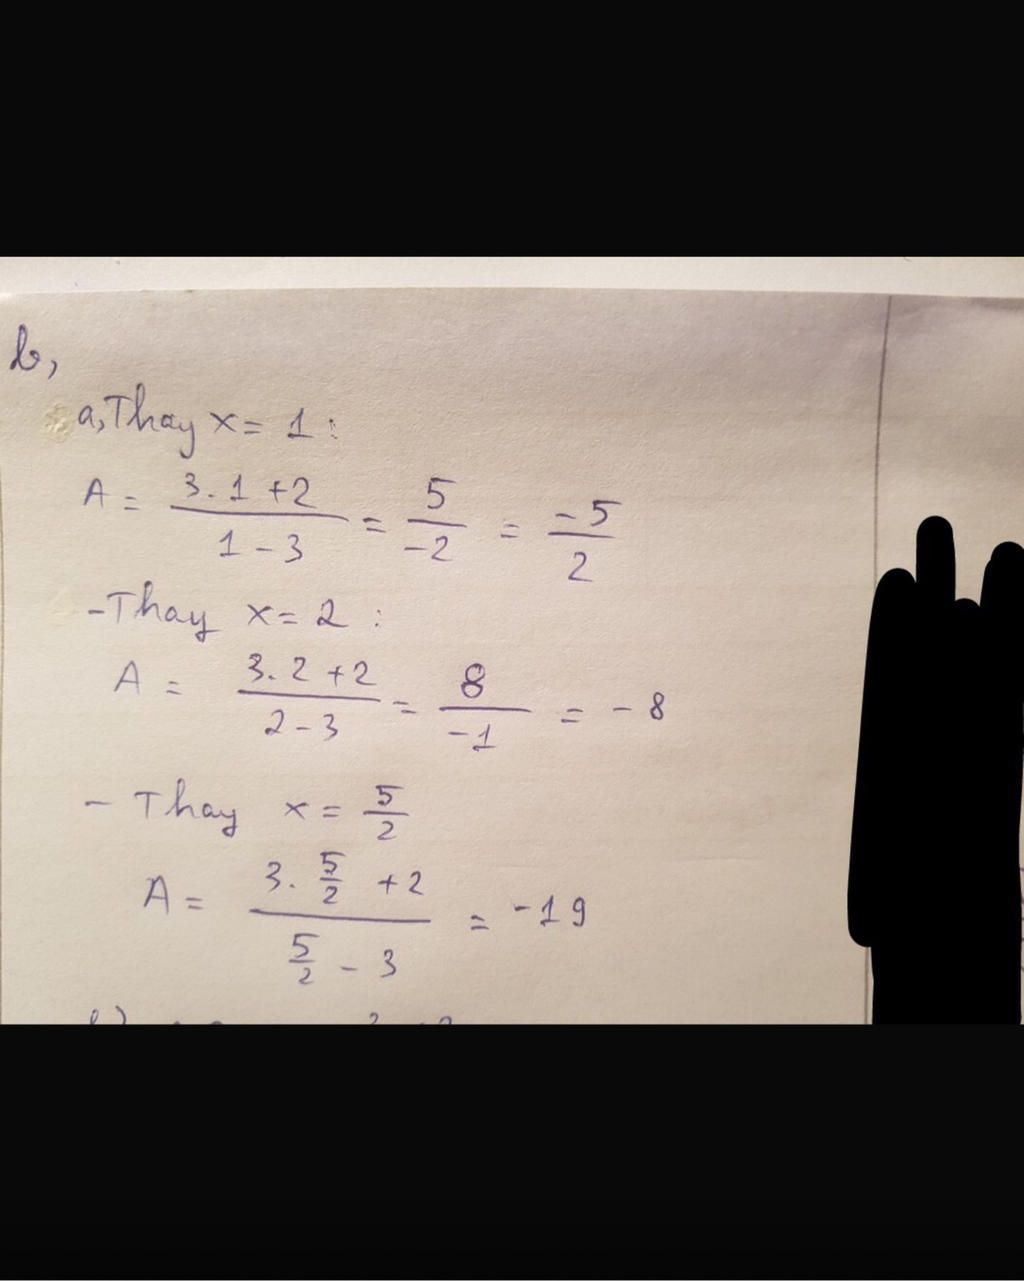 b,
a, Thay x = 1 :
A = \frac{3.1+2}{1-3} = \frac{5}{-2} = \frac{-5}{2}
- Thay x = 2 :
A = \frac{3.2+2}{2-3} = \frac{8}{-1} = -8
- Thay x = \frac{5}{2}
A = \frac{3.\frac{5}{2}+2}{\frac{5}{2}-3} = -19